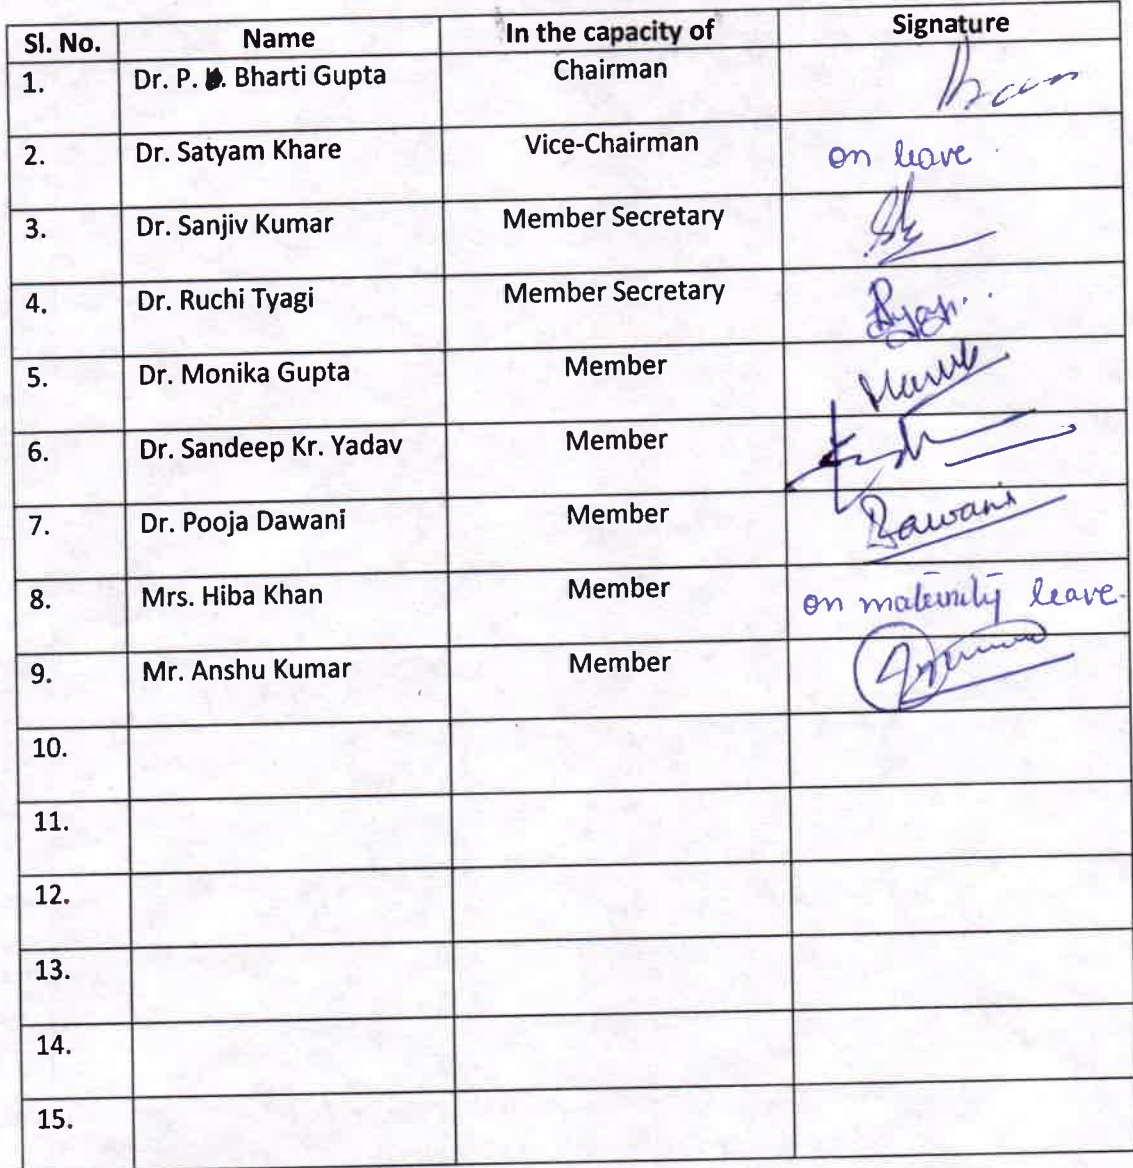 Sl. No. Name In the capacity of Signature
1. Dr. P. Bharti Gupta Chairman
2. Dr. Satyam Khare Vice-Chairman on leave.
3. Dr. Sanjiv Kumar Member Secretary
4. Dr. Ruchi Tyagi Member Secretary
5. Dr. Monika Gupta Member
6. Dr. Sandeep Kr. Yadav Member
7. Dr. Pooja Dawani Member Dawani
8. Mrs. Hiba Khan Member on maternity leave.
9. Mr. Anshu Kumar Member
10.
11.
12.
13.
14.
15.